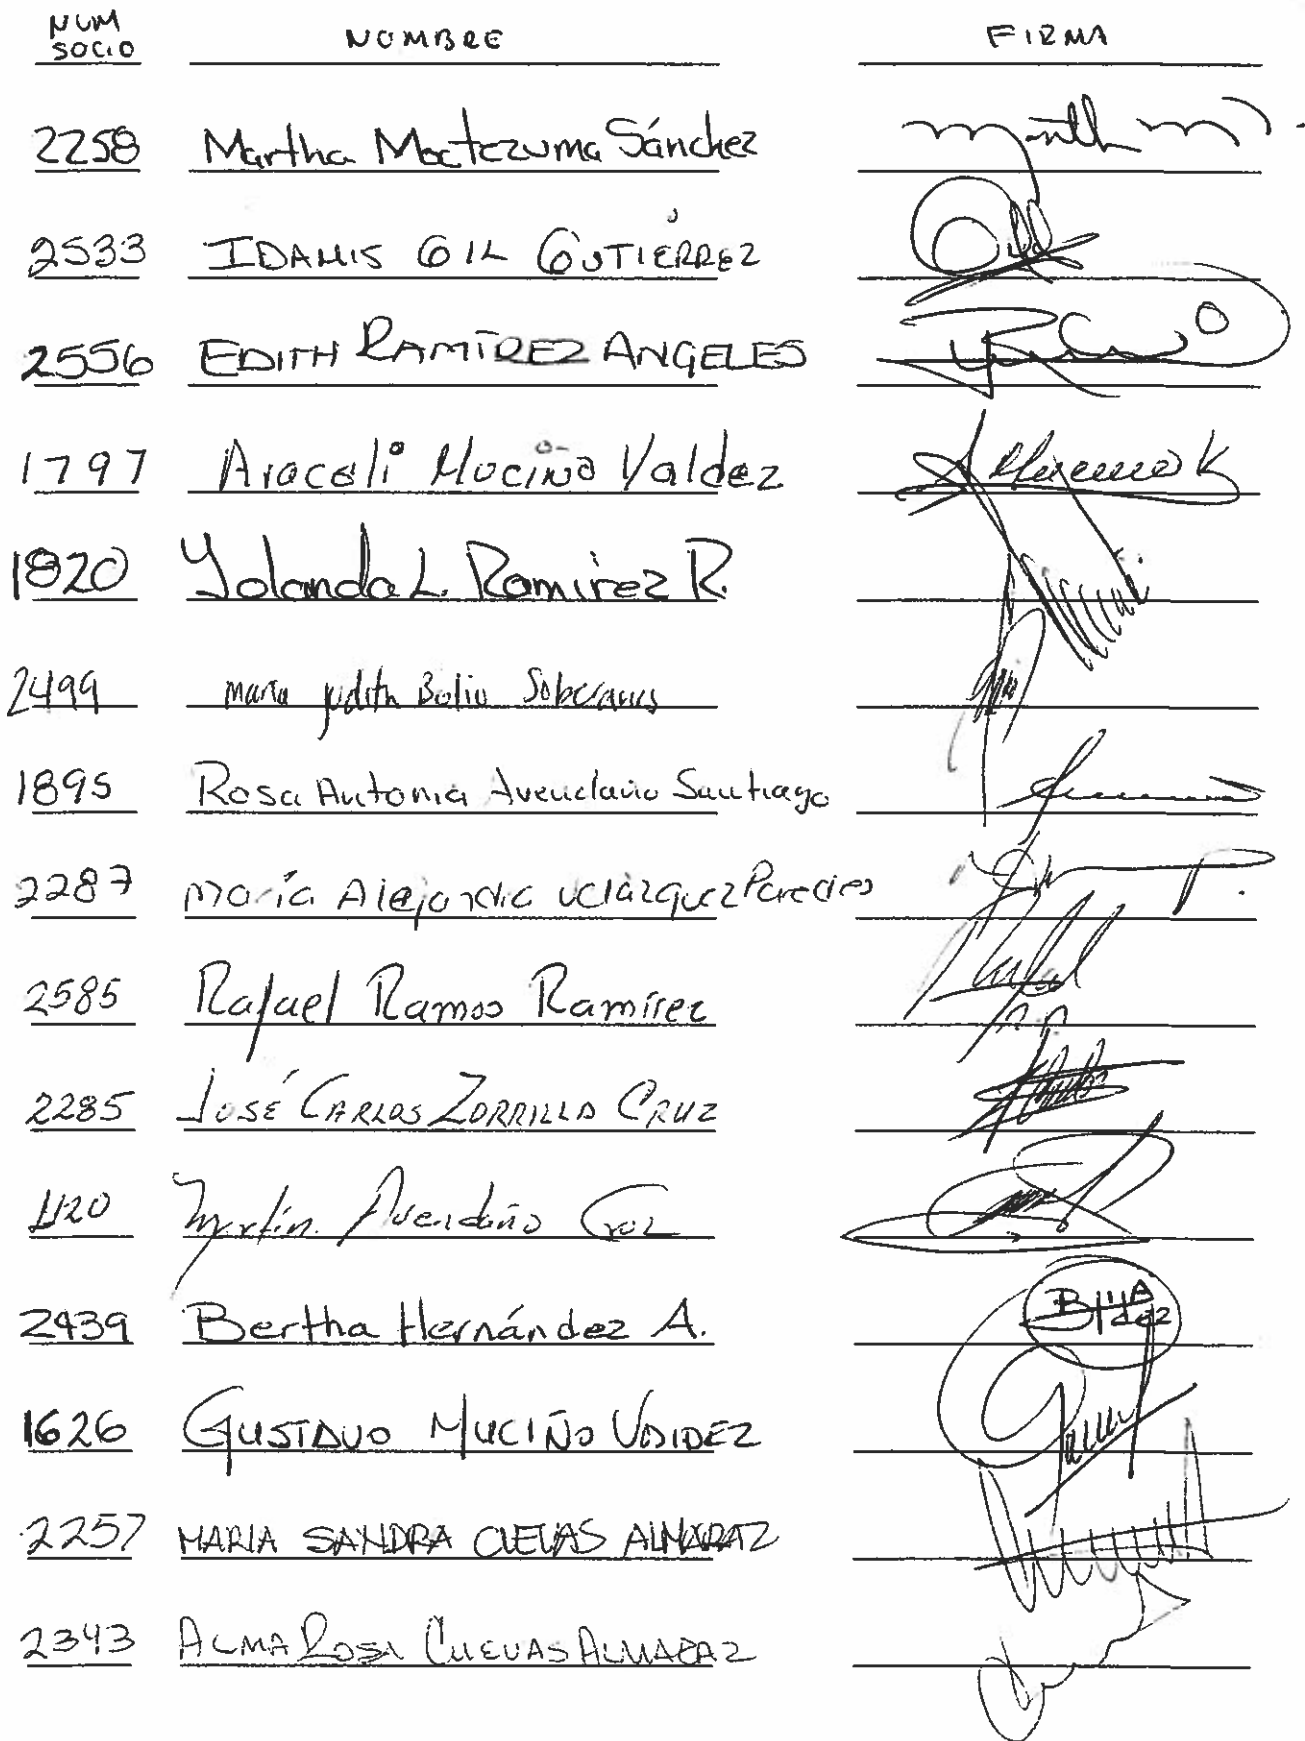 NUM SOCIO NOMBRE FIRMA
2258 Martha Moctezuma Sánchez
2533 IDAMIS GIL GUTIÉRREZ
2556 EDITH RAMÍREZ ANGELES
1797 Araceli Muciño Valdez
1820 Yolanda L. Ramirez R.
2499 Maria Judith Bolio Soberanes
1895 Rosa Antonia Avendaño Santiago
2287 María Alejandra Velázquez Paredes
2585 Rafael Ramos Ramírez
2285 JOSÉ CARLOS ZORRILLA CRUZ
1120 Martín Avendaño Cruz
2439 Bertha Hernández A.
1626 GUSTAVO MUCIÑO VALDEZ
2257 MARIA SANDRA CUEVAS ALMARAZ
2343 ALMA ROSA CUEVAS ALMARAZ